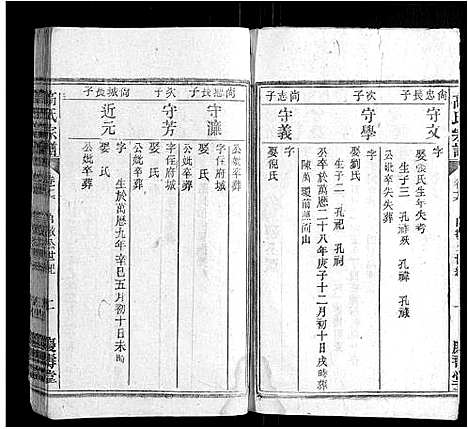 高氏宗譜
尚忠長子
守文
字
娶張氏生年失考
公妣卒失葬
生子三 孔
次子
守學
字
娶劉氏
生子二 孔祀 孔祠
尚志子
守義
字
公卒於萬歷二十八年庚子十二月初十日戌時葬
陳萬頭前
娶倪氏
尚忠長子
守濂
字任府城
娶氏
公妣卒葬
次子
守芳
字任府城
娶氏
公妣卒葬
尚城長子
近元
字
生於萬歷九年辛巳五月初十日未時
娶氏
公妣卒葬
高氏宗譜
二
慶壽堂